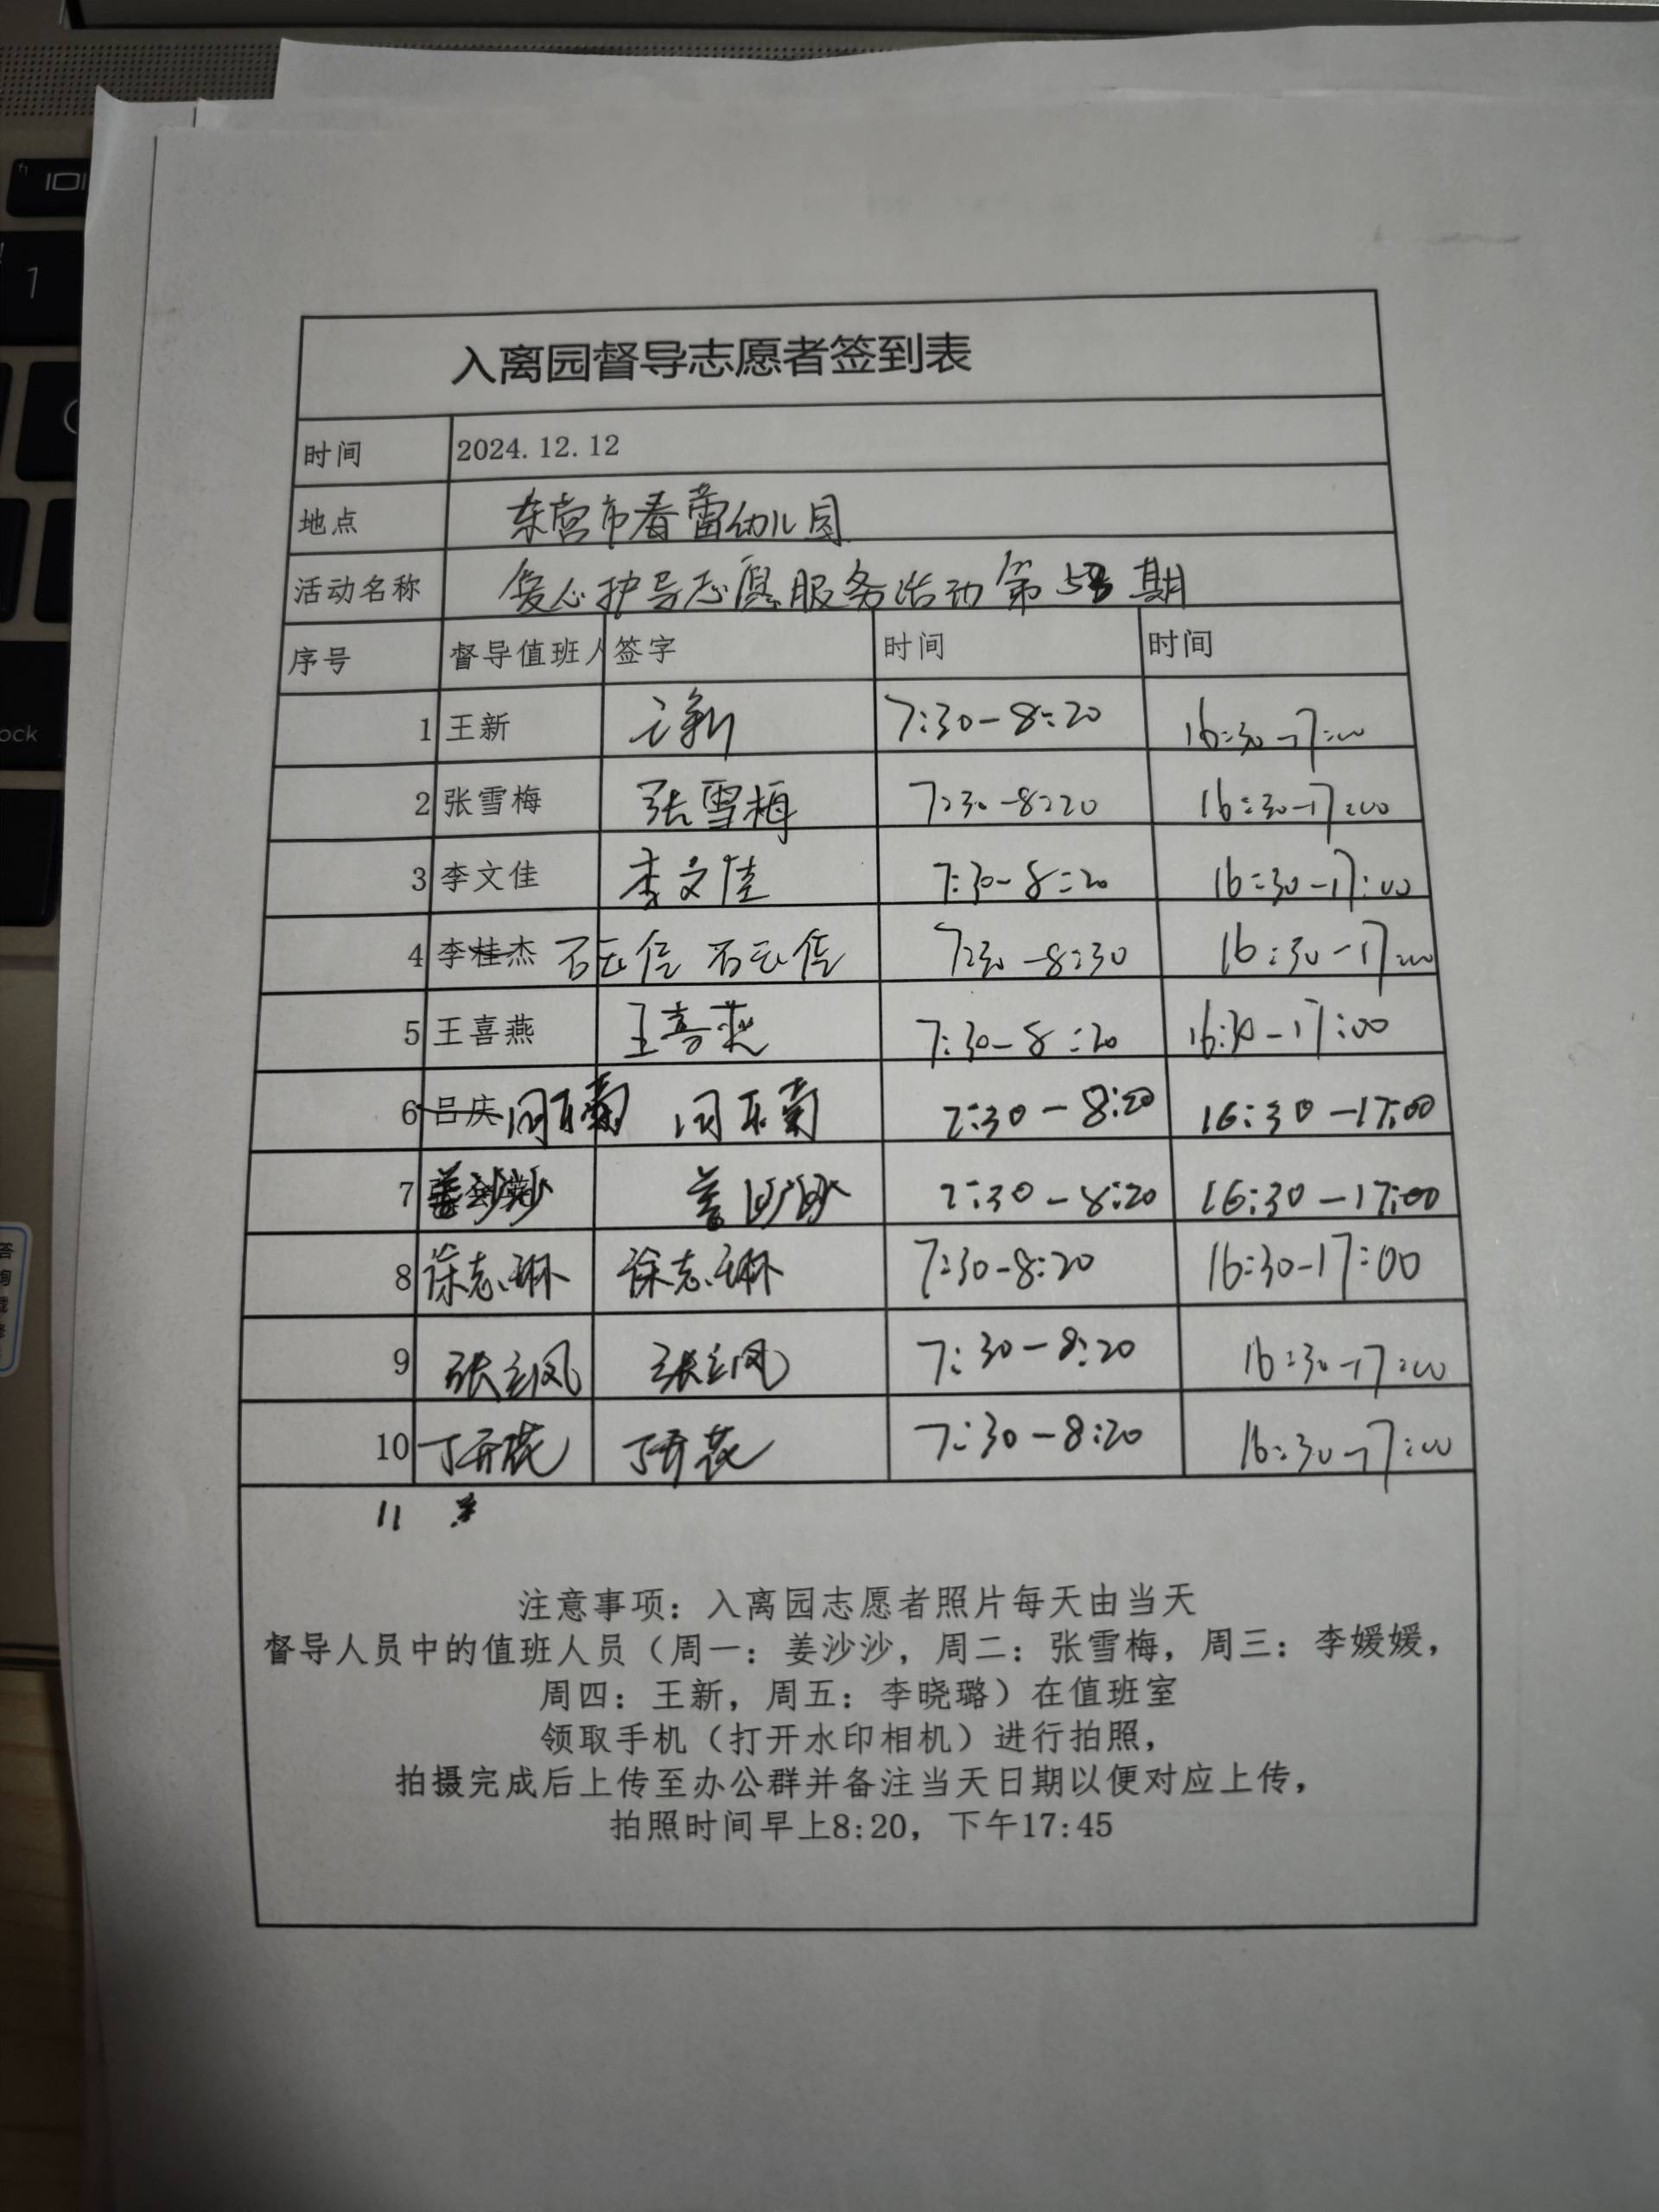 入离园督导志愿者签到表
时间 2024.12.12
地点 东营市春蕾幼儿园
活动名称 爱心护导志愿服务活动第58期
序号 督导值班人 签字 时间 时间
1 王新 王新 7:30-8:20 16:30-17:00
2 张雪梅 张雪梅 7:30-8:20 16:30-17:00
3 李文佳 李文佳 7:30-8:20 16:30-17:00
4 李桂杰 石云信 石云信 7:30-8:30 16:30-17:00
5 王喜燕 王喜燕 7:30-8:20 16:30-17:00
6 吕庆 闫东菊 闫东菊 7:30-8:20 16:30-17:00
7 姜沙沙 姜沙沙 7:30-8:20 16:30-17:00
8 徐志琳 徐志琳 7:30-8:20 16:30-17:00
9 张立凤 张立凤 7:30-8:20 16:30-17:00
10 丁开花 丁开花 7:30-8:20 16:30-17:00
11
注意事项：入离园志愿者照片每天由当天
督导人员中的值班人员（周一：姜沙沙，周二：张雪梅，周三：李媛媛，
周四：王新，周五：李晓璐）在值班室
领取手机（打开水印相机）进行拍照，
拍摄完成后上传至办公群并备注当天日期以便对应上传，
拍照时间早上8:20，下午17:45
1
ock